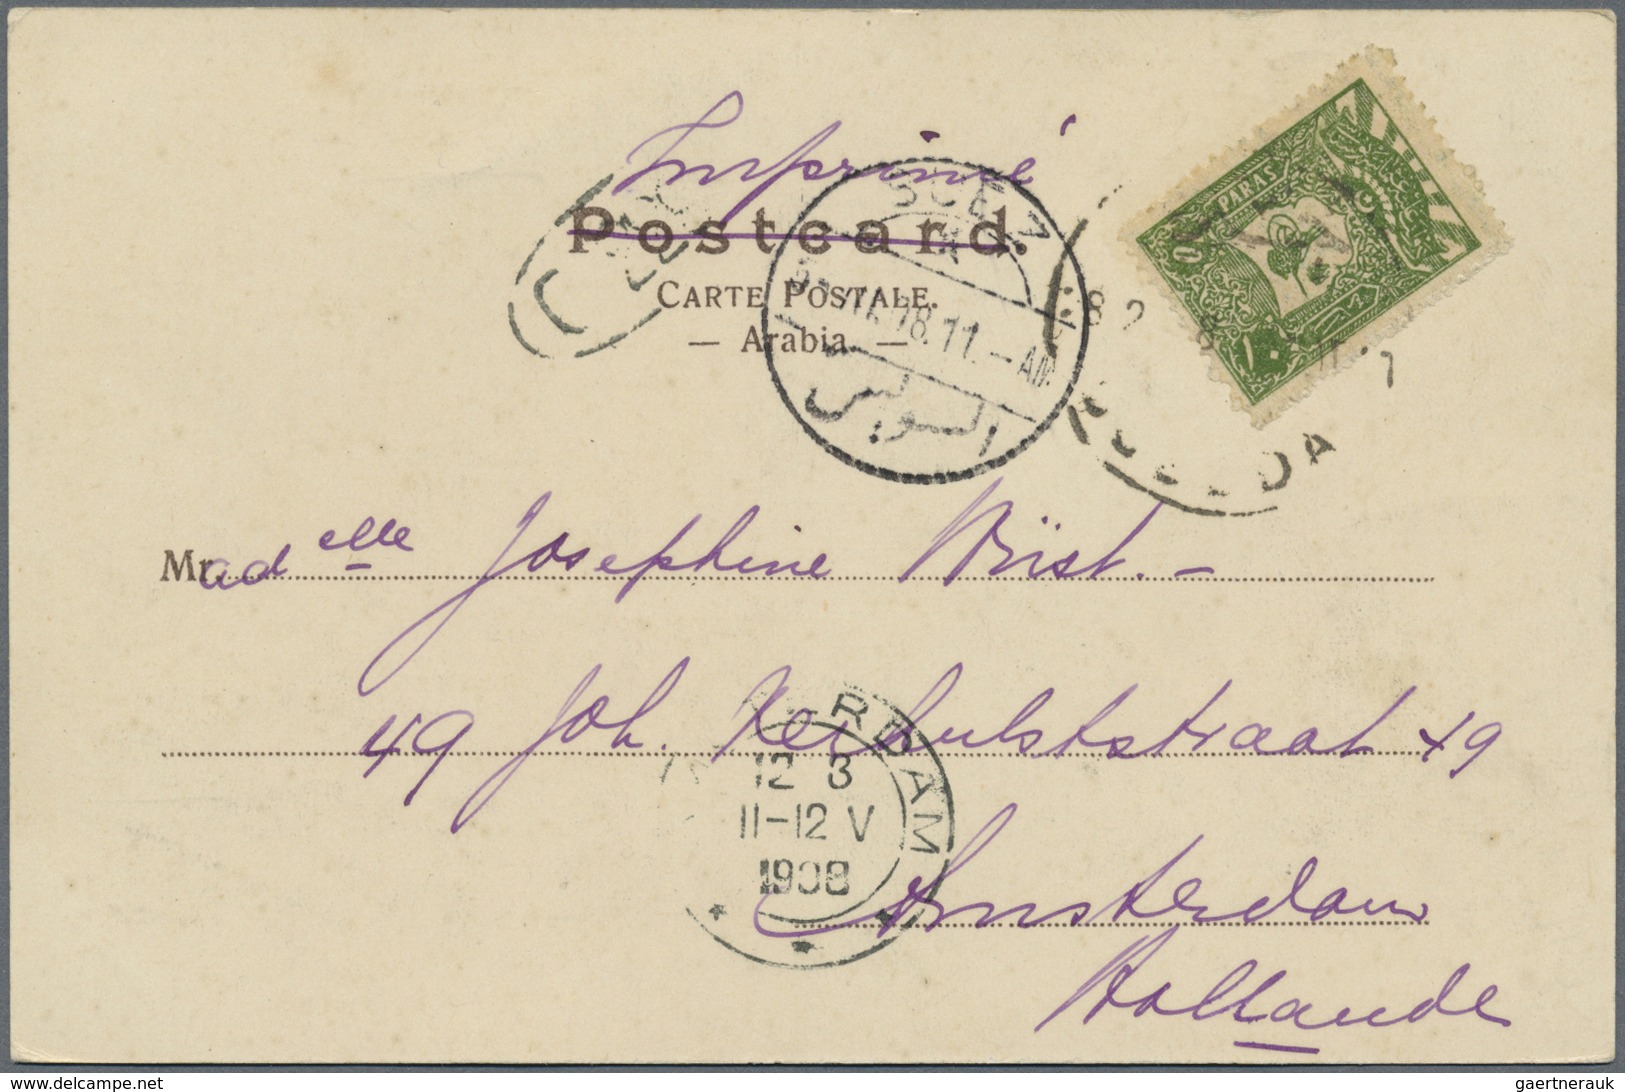 Imprimé
Postcard.
CARTE POSTALE.
— Arabia. —
SUEZ
16 II 08. 11. - AM
السويس
PARAS
10
١٠
HODEIDA
Madelle Josephine Wüst. -
49 Joh. Verhulststraat 49
Amsterdam
Hollande
AMSTERDAM
12 3
11-12 V
1908
www.delcampe.net
gaertnerauk